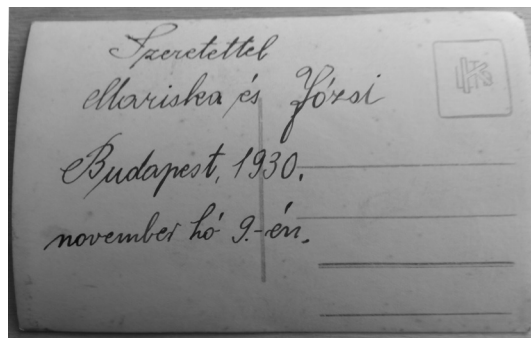 Szeretettel
Mariska és Józsi
Budapest, 1930.
november hó 9.-én.